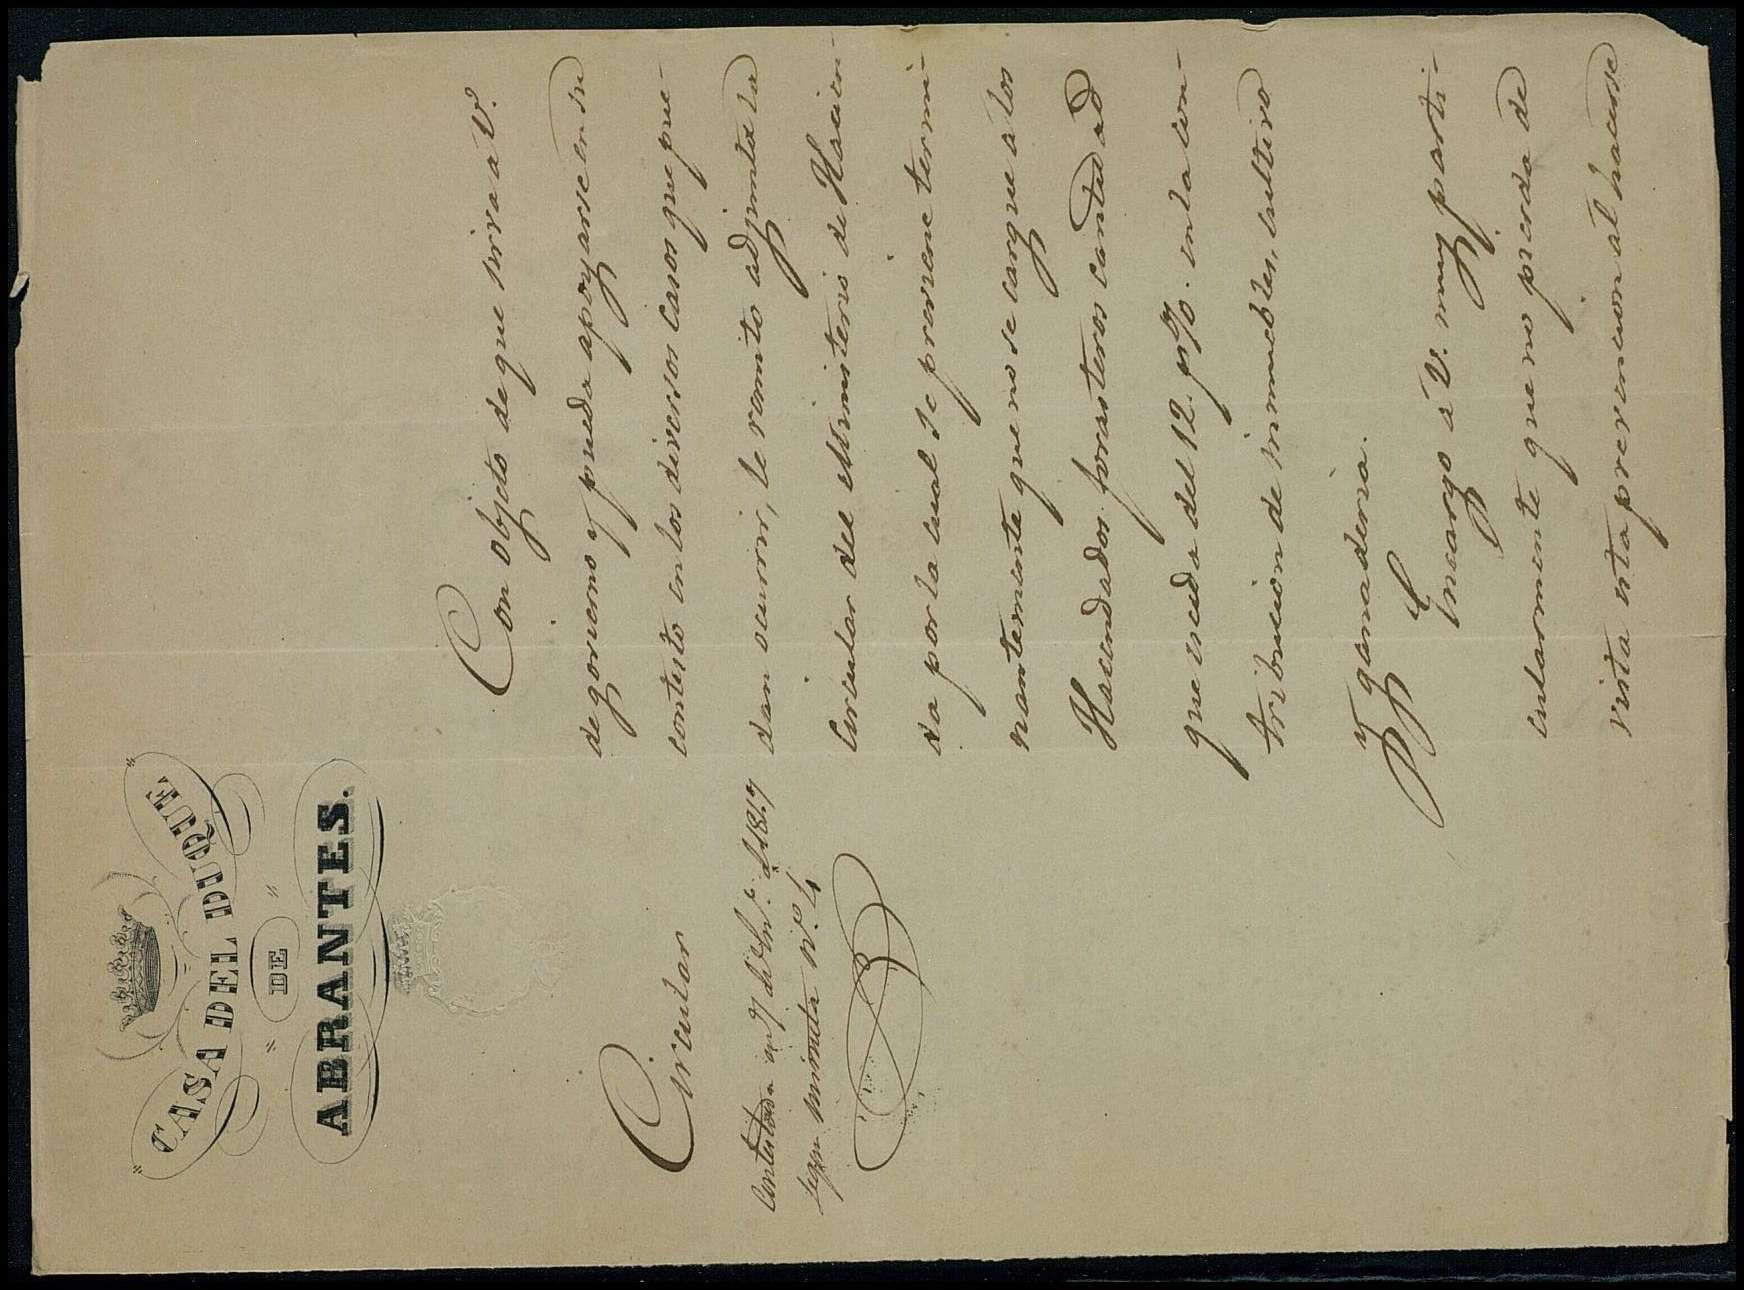 CASA DEL DUQUE
DE
ABRANTES.
Circular
Contestada en 7 de En.º de 1847
segun minuta N.º 4
Con objeto de que sirva a V.
de govierno y pueda apoyarse en su
contesto en los diversos casos que pue-
dan ocurrir, le remito adjunta la
Circular del Ministerio de Hacien-
da por la cual se previene termi-
nantemente que no se cargue a los
Hacendados forasteros cantidad
que esceda del 12. p%. en la con-
tribucion de inmuebles, cultivo
y ganaderia.
Encargo a V. muy parti-
cularmente que no pierda de
vista esta prevencion al hacerse